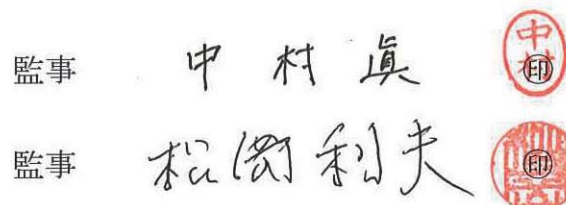 監事 中村眞 中村 ㊞
監事 松岡利夫 ㊞